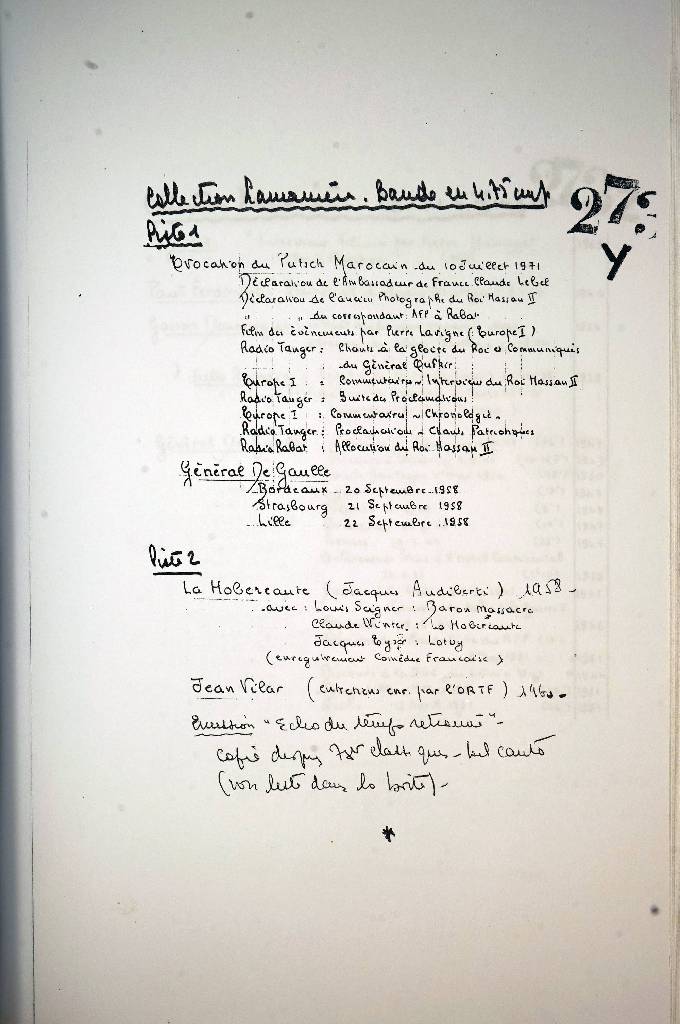 Collection Lamoureux. Bande en 4.75 cm/s
27
Y
Piste 1
Evocation du Putsch Marocain du 10 Juillet 1971
Déclaration de l'Ambassadeur de France Claude Lebel
Déclaration de l'ancien Photographe du Roi Hassan II
" " du correspondant AFP à Rabat
Film des évènements par Pierre Lavigne (Europe I)
Radio Tanger : Chants à la gloire du Roi et Communiqués
du Général Oufkir
Europe I : Commentaires - Interview du Roi Hassan II
Radio Tanger : Suite des Proclamations
Europe I : Commentaires - Chronologie -
Radio Tanger : Proclamations - Chants Patriotiques
Radio Rabat : Allocution du Roi Hassan II
Général De Gaulle
Bordeaux - 20 Septembre 1958
Strasbourg 21 Septembre 1958
Lille 22 Septembre 1958
Piste 2
La Hobereaute (Jacques Audiberti) 1958 -
avec : Louis Seigner : Baron Massacre
Claude Winter : La Hobereaute
Jacques Eyser : Lotvy
(enregistrement Comédie Francaise)
Jean Vilar (entretiens enr. par l'ORTF) 196
Emission "Echo du temps retrouvé" -
copié depuis classiques - bel canto
(voir liste dans la boîte) -
*